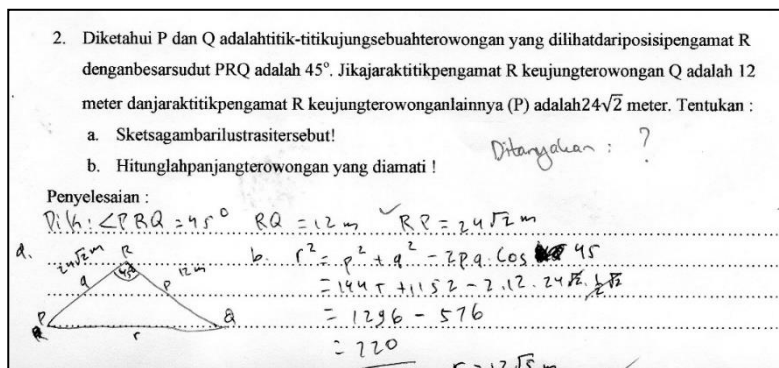 2. Diketahui P dan Q adalahtitik-titikujungsebuahterowongan yang dilihatdariposisipengamat R
denganbesarsudut PRQ adalah 45°. Jikajaraktitikpengamat R keujungterowongan Q adalah 12
meter danjaraktitikpengamat R keujungterowonganlainnya (P) adalah24√2 meter. Tentukan :
a. Sketsagambarilustrasitersebut!
Ditanyakan : ?
b. Hitunglahpanjangterowongan yang diamati !
Penyelesaian :
Dik : ∠PRQ = 45° RQ = 12 m RP = 24√2 m
a.
24√2 m R 12 m
q 45 p
P r Q
b. r² = p² + q² - 2pq. Cos 45
= 144 + 1152 - 2.12.24√2.½√2
= 1296 - 576
= 720
r = 12√5 m